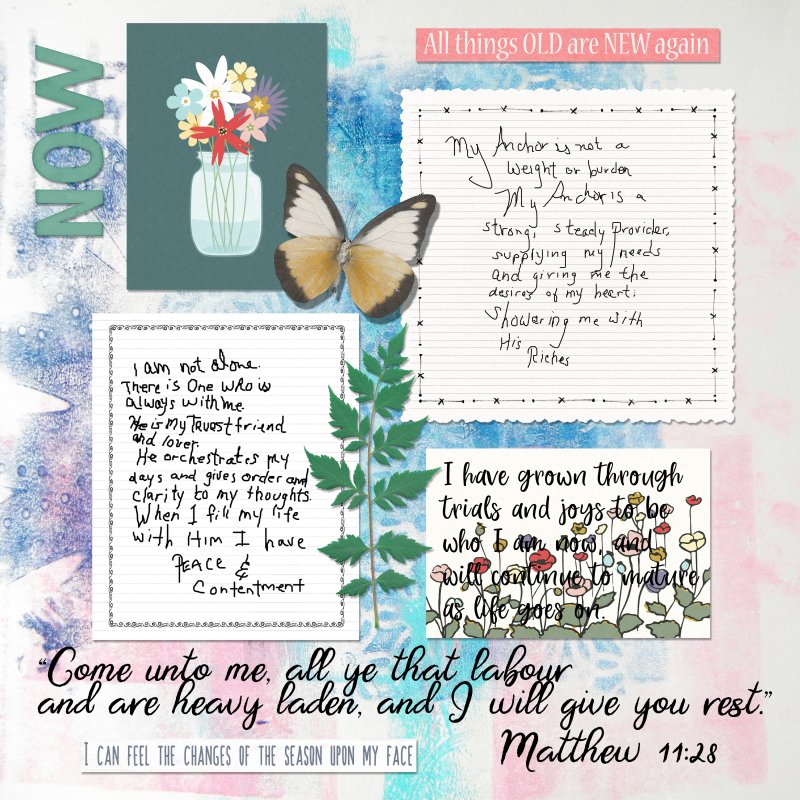 NOW
All things OLD are NEW again
My Anchor is not a
weight or burden
My Anchor is a
strong, steady provider,
supplying my needs
and giving me the
desires of my heart:
Showering me with
His
Riches
I am not alone.
There is One who is
always with me.
He is my truest friend
and lover.
He orchestrates my
days and gives order and
clarity to my thoughts.
When I fill my life
with Him I have
PEACE &
Contentment
I have grown through
trials and joys to be
who I am now, and
will continue to mature
as life goes on.
“Come unto me, all ye that labour
and are heavy laden, and I will give you rest.”
Matthew 11:28
I CAN FEEL THE CHANGES OF THE SEASON UPON MY FACE